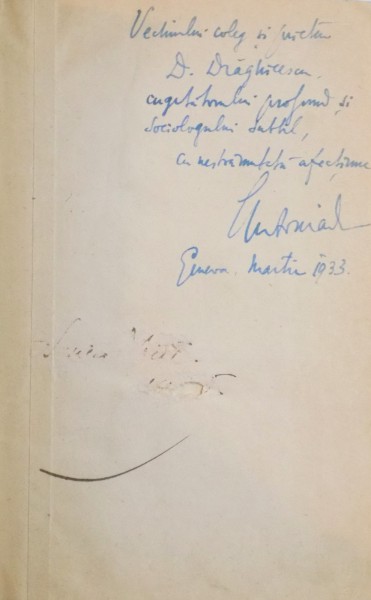 Vechiului coleg și prieten
D. Drăghicescu,
cugetătorului profund și
sociologului subtil,
cu nestrămutată afecțiune
Antoniade
Geneva. Martie 1933.